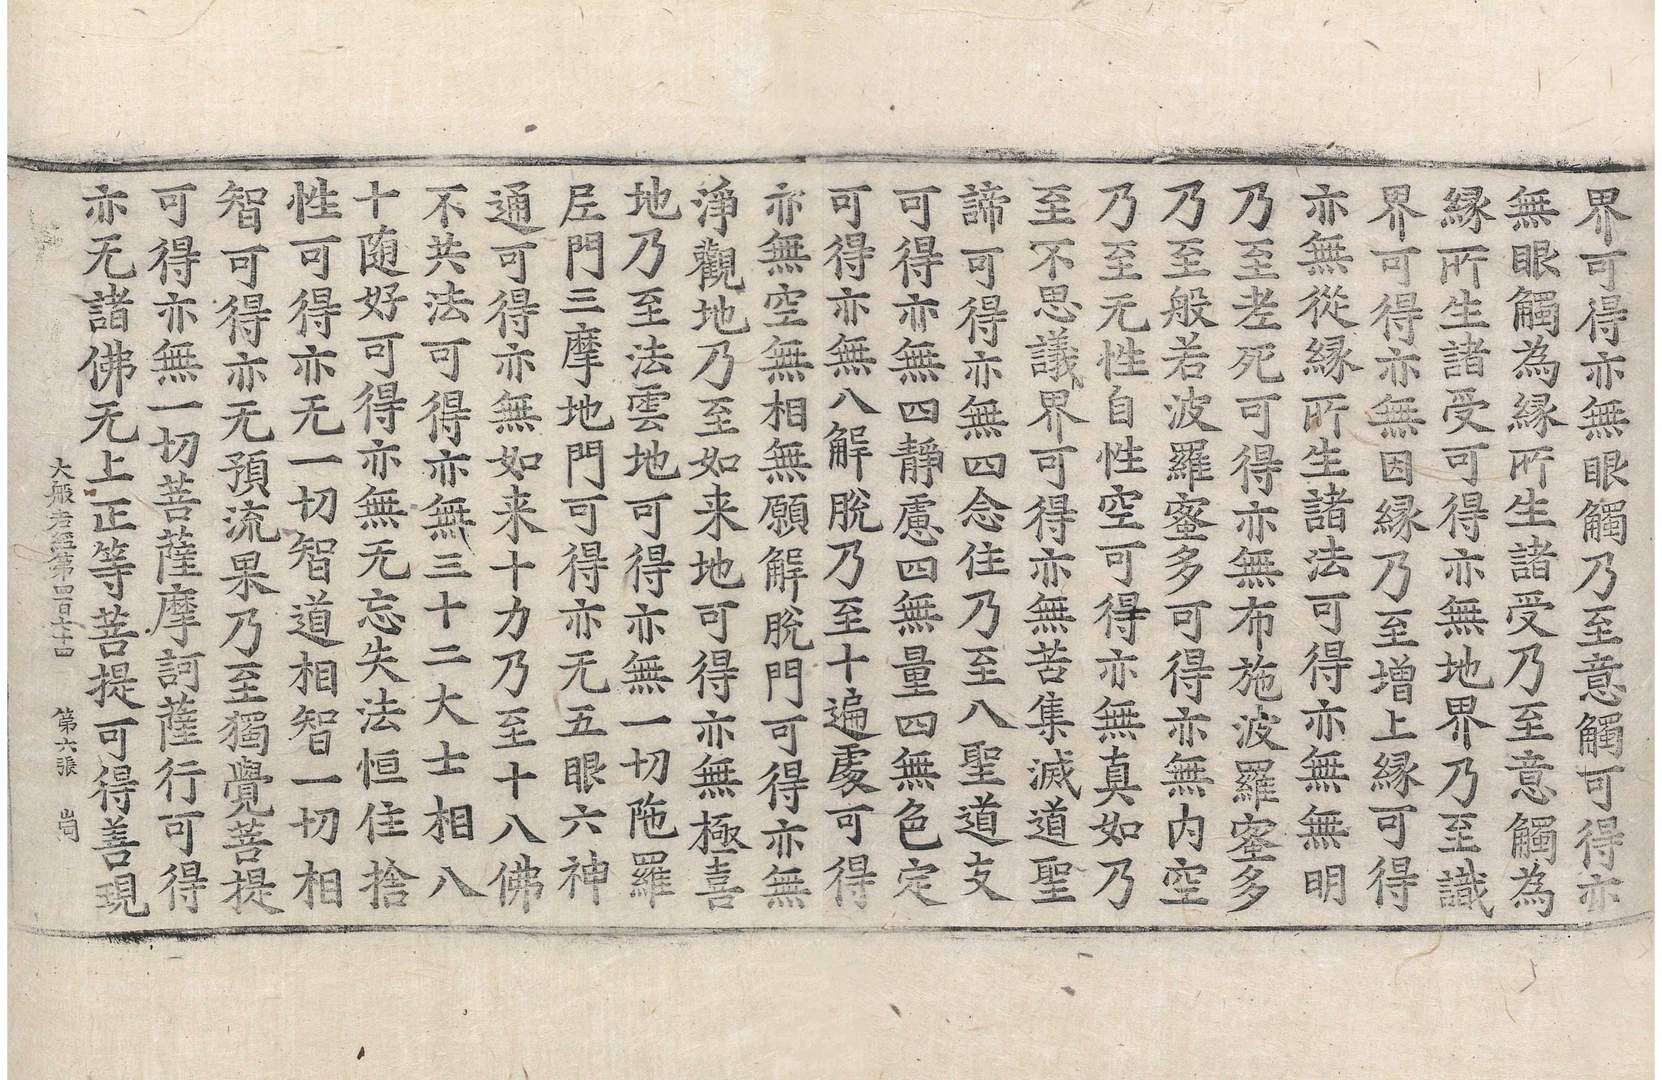 界可得亦無眼觸乃至意觸可得亦
無眼觸為緣所生諸受乃至意觸為
緣所生諸受可得亦無地界乃至識
界可得亦無因緣乃至增上緣可得
亦無從緣所生諸法可得亦無無明
乃至老死可得亦無布施波羅蜜多
乃至般若波羅蜜多可得亦無內空
乃至无性自性空可得亦無真如乃
至不思議界可得亦無苦集滅道聖
諦可得亦無四念住乃至八聖道支
可得亦無四靜慮四無量四無色定
可得亦無八解脫乃至十遍處可得
亦無空無相無願解脫門可得亦無
淨觀地乃至如来地可得亦無極喜
地乃至法雲地可得亦無一切陁羅
尼門三摩地門可得亦无五眼六神
通可得亦無如来十力乃至十八佛
不共法可得亦無三十二大士相八
十随好可得亦無无忘失法恒住捨
性可得亦无一切智道相智一切相
智可得亦无預流果乃至獨覺菩提
可得亦無一切菩薩摩訶薩行可得
亦无諸佛无上正等菩提可得善現
大般若經第四百七十四 第六張 崗